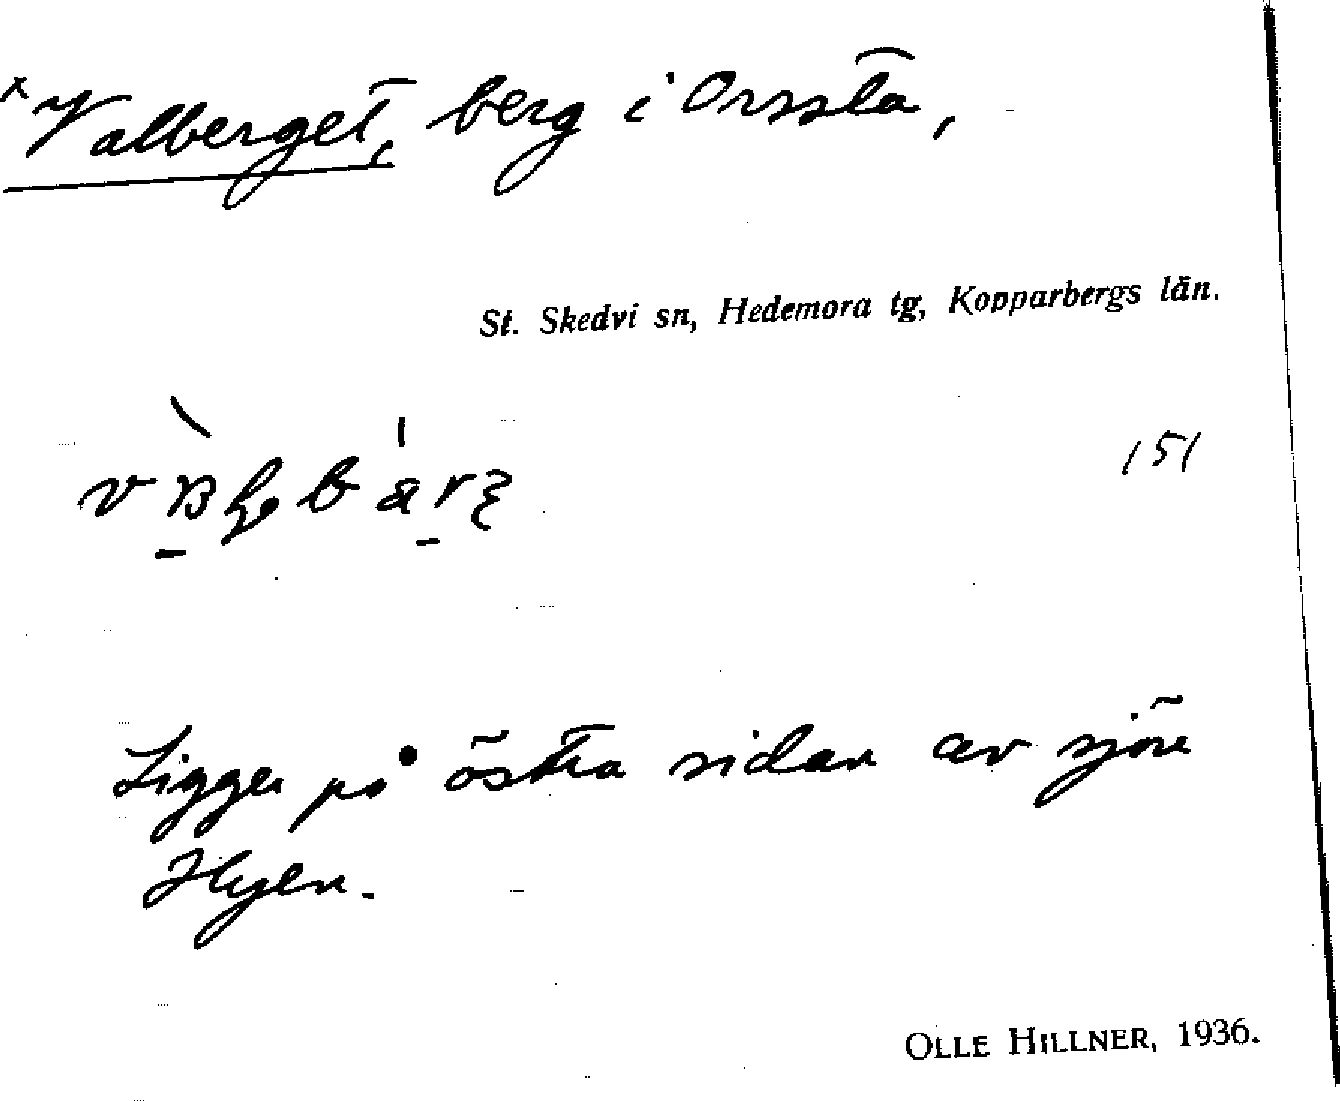 x Valberget, berg i Orssta,
St. Skedvi sn, Hedemora tg, Kopparbergs län.
151
Ligger på östra sidan av sjön
Hyen.
OLLE HILLNER, 1936.